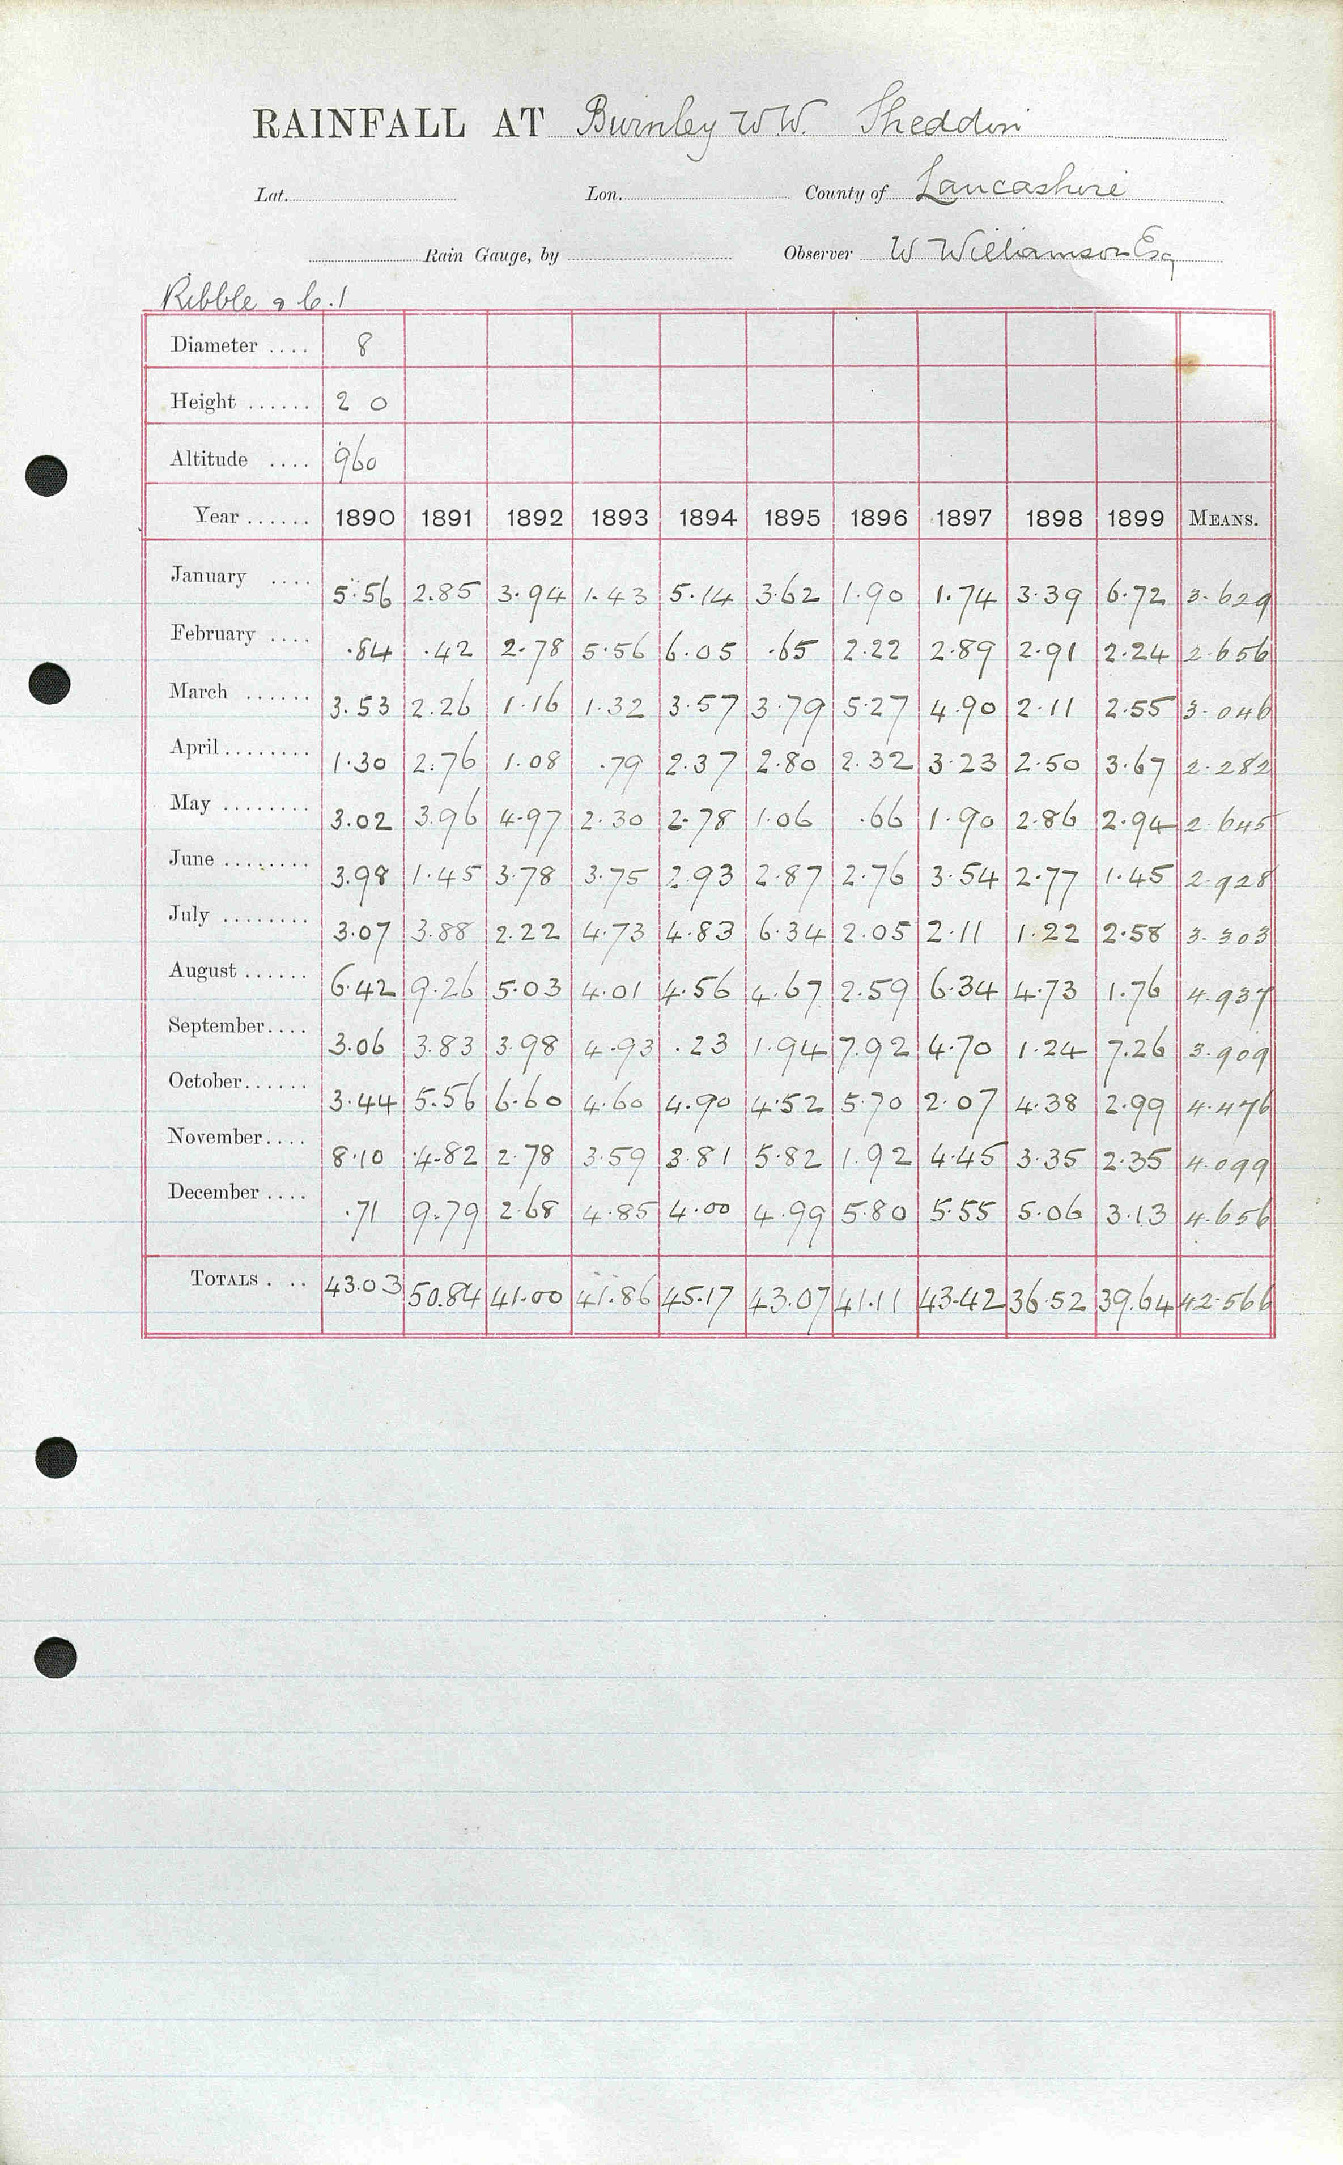 RAINFALL AT Burnley W.W. Sheddin
Lat. Lon. County of Lancashire
Rain Gauge, by Observer W Williamson Esq
Ribble
Diameter .... 8
Height ...... 2 0
Altitude .... 960
Year ...... 1890 1891 1892 1893 1894 1895 1896 1897 1898 1899 MEANS.
January .... 5.56 2.85 3.94 1.43 5.14 3.62 1.90 1.74 3.39 6.72 3.629
February .... .84 .42 2.78 5.56 6.05 .65 2.22 2.89 2.91 2.24 2.656
March ...... 3.53 2.26 1.16 1.32 3.57 3.79 5.27 4.90 2.11 2.55 3.046
April ........ 1.30 2.76 1.08 .79 2.37 2.80 2.32 3.23 2.50 3.67 2.282
May ........ 3.02 3.96 4.97 2.30 2.78 1.06 .66 1.90 2.86 2.94 2.645
June ........ 3.98 1.45 3.78 3.75 2.93 2.87 2.76 3.54 2.77 1.45 2.928
July ........ 3.07 3.88 2.22 4.73 4.83 6.34 2.05 2.11 1.22 2.58 3.303
August ...... 6.42 9.26 5.03 4.01 4.56 4.67 2.59 6.34 4.73 1.76 4.937
September .... 3.06 3.83 3.98 4.93 .23 1.94 7.92 4.70 1.24 7.26 3.909
October ...... 3.44 5.56 6.60 4.60 4.90 4.52 5.70 2.07 4.38 2.99 4.476
November .... 8.10 4.82 2.78 3.59 3.81 5.82 1.92 4.45 3.35 2.35 4.099
December .... .71 9.79 2.68 4.85 4.00 4.99 5.80 5.55 5.06 3.13 4.656
TOTALS . .. 43.03 50.84 41.00 41.86 45.17 43.07 41.11 43.42 36.52 39.64 42.566